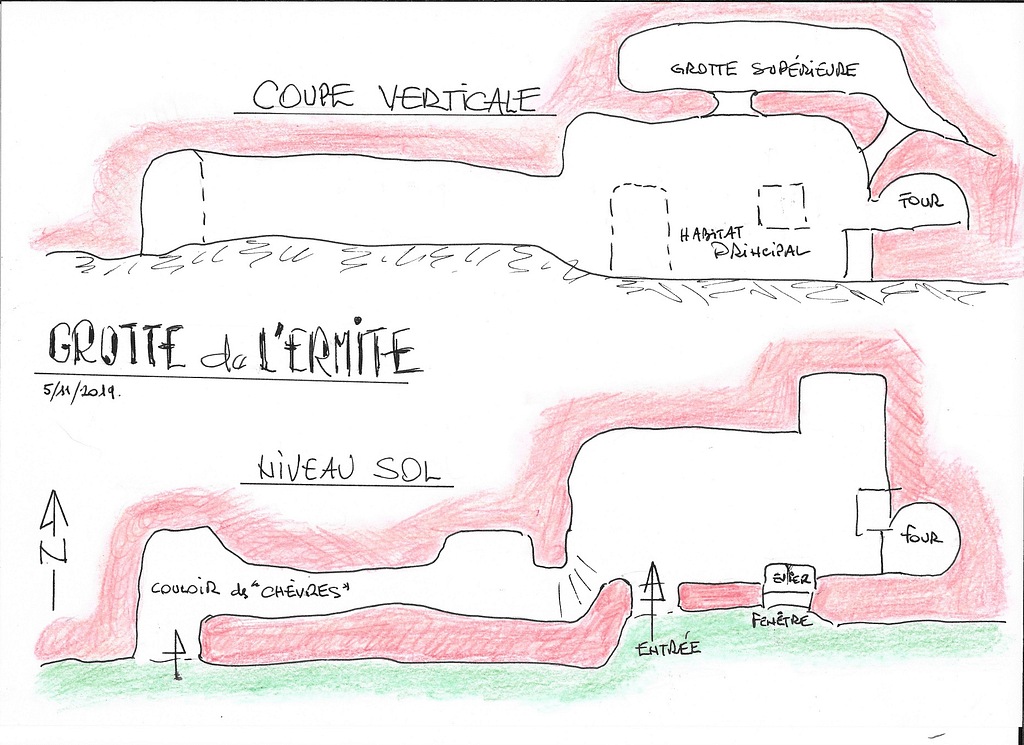 COUPE VERTICALE
GROTTE SUPÉRIEURE
FOUR
HABITAT
PRINCIPAL
GROTTE de L'ERMITE
5/11/2019.
NIVEAU SOL
N
FOUR
COULOIR des "CHÈVRES"
EVIER
FENÊTRE
ENTRÉE